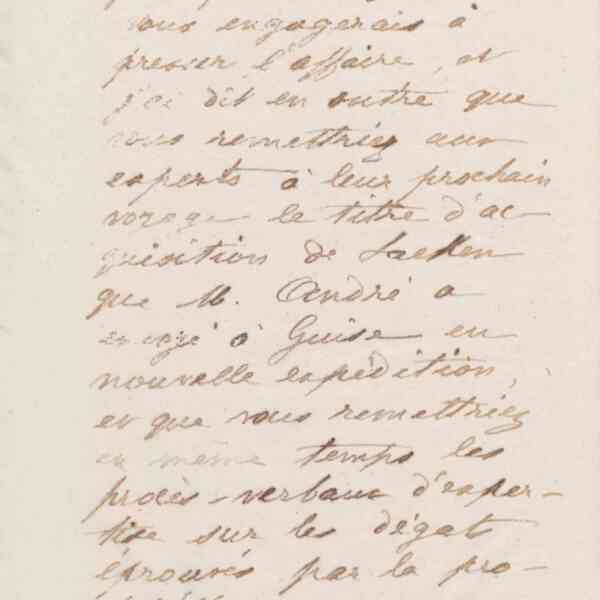 vous engagerais à
presser l'affaire, et
j'ai dit en outre que
vous remettriez aux
experts à leur prochain
voyage le titre d'ac-
quisition de Laeken
que M. André a
envoyé à Guise en
nouvelle expédition,
et que vous remettriez
en même temps les
procès-verbaux d'exper-
tise sur les dégat
éprouvés par la pro-